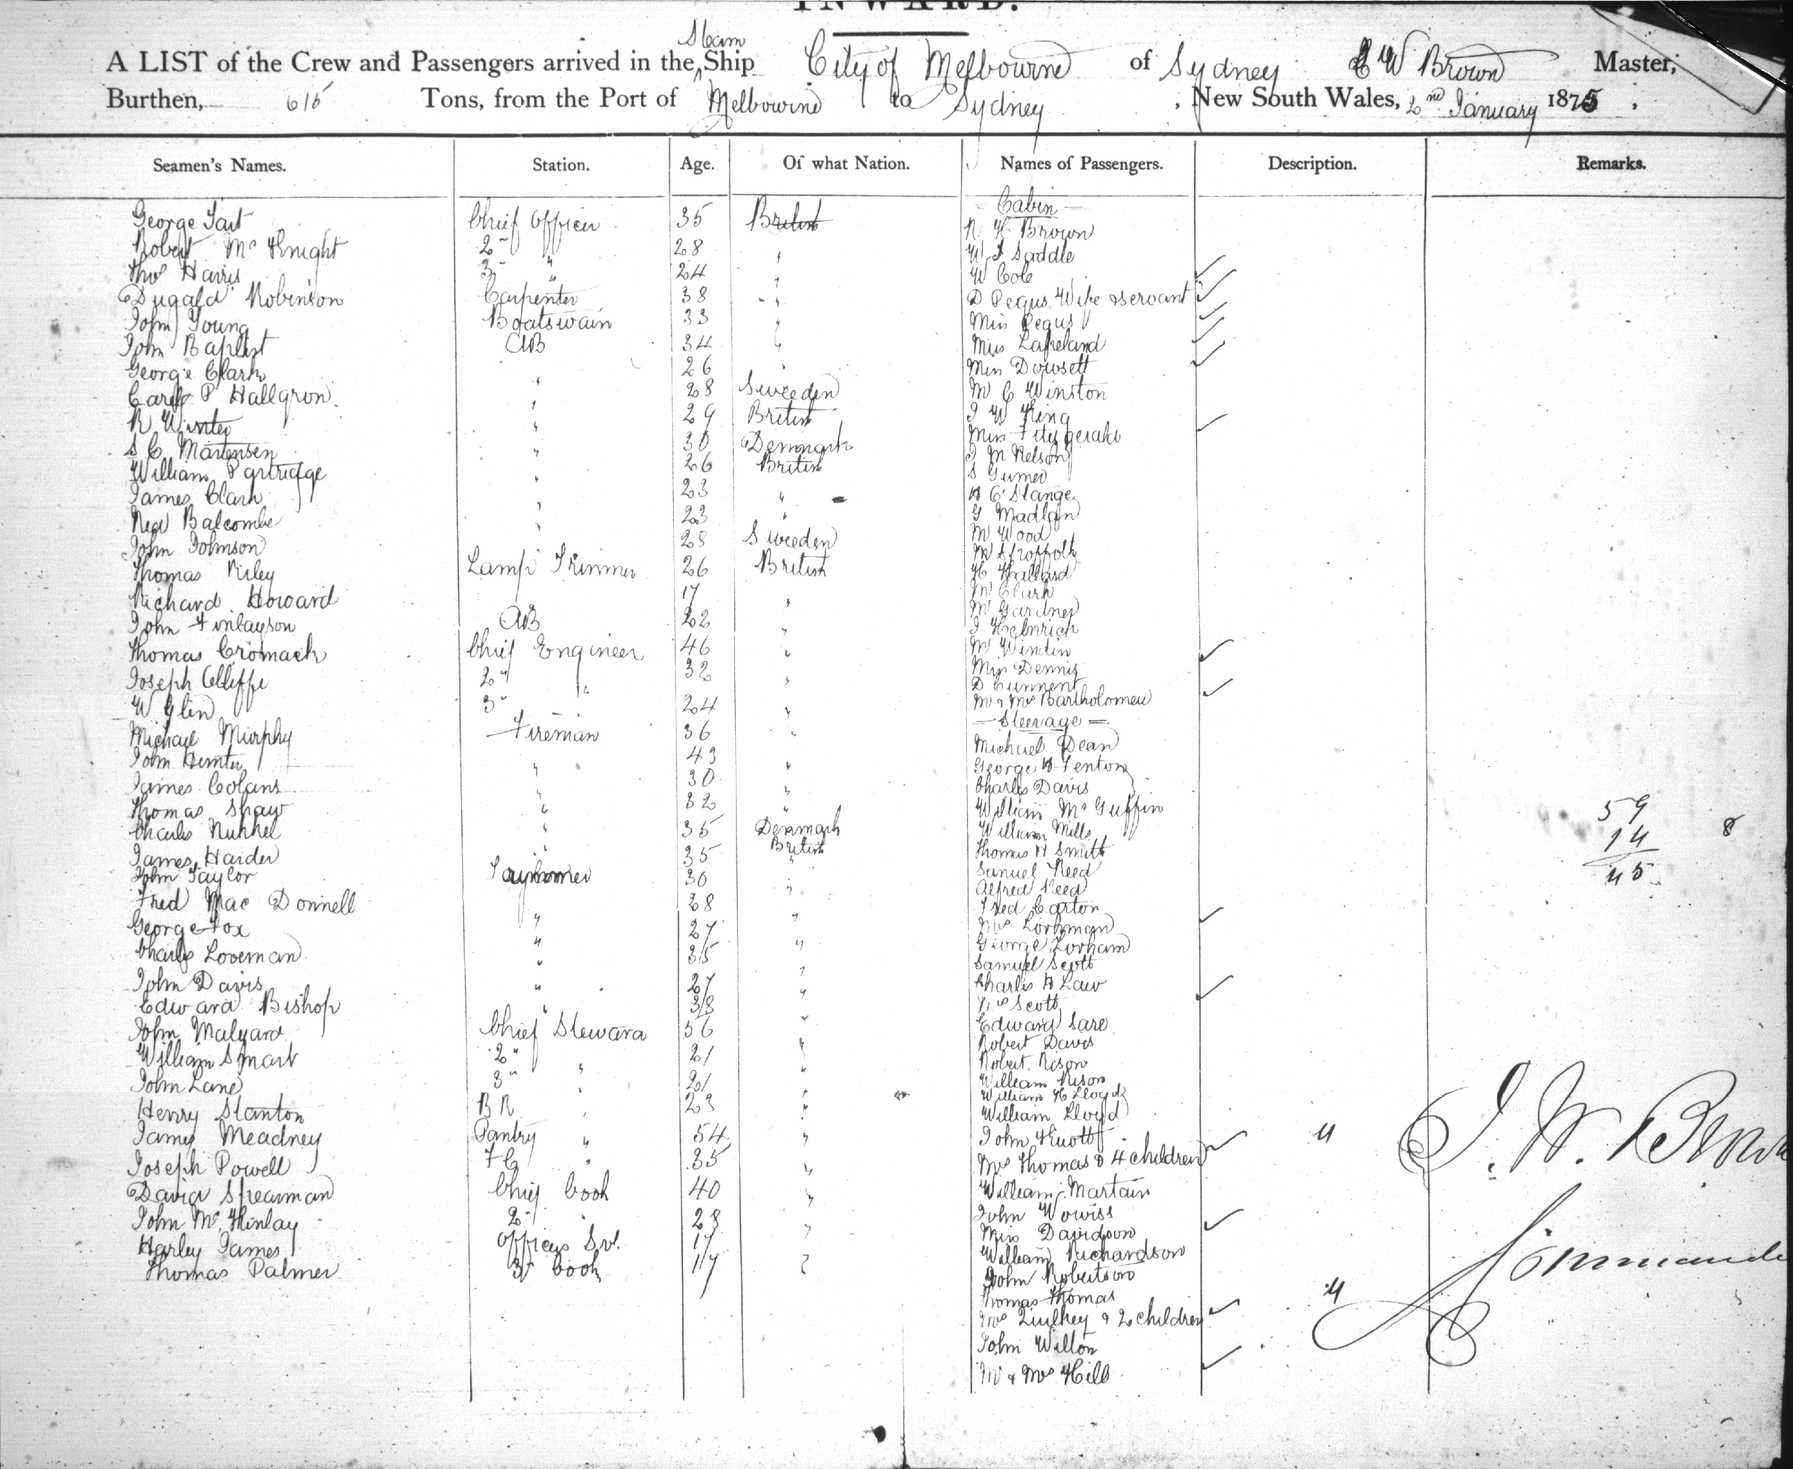 INWARD.
A LIST of the Crew and Passengers arrived in the Steam Ship City of Melbourne of Sydney W Brown Master,
Burthen, 615 Tons, from the Port of Melbourne to Sydney, New South Wales, 2nd January 1875.
Seamen's Names. Station. Age. Of what Nation. Names of Passengers. Description. Remarks.
George Tait Chief Officer 35 British
Robert McKnight 2nd " 28 "
Thos Harris 3rd " 24 "
Dugald Robinson Carpenter 38 "
John Young Boatswain 33 "
John Baptist AB 34 "
George Clark " 26 "
Carl P Hallgron " 28 Sweeden
R Winter " 29 British
S C Martensen " 30 Denmark
William Partridge " 26 British
James Clark " 23 "
Balcombe " 23 "
John Johnson " 28 Sweeden
Thomas Riley Lamp Trimmer 26 British
Richard Howard 17 "
John Finlayson AB 22 "
Thomas Cromack Chief Engineer 46 "
Joseph 2nd " 32 "
W Glen 3rd " 24 "
Michael Murphy Fireman 36 "
John Hunter " 43 "
James Colans " 30 "
Thomas Shaw " 32 "
Charles " 35 Denmark
James Harder " 35 British
John Taylor 30 "
Fred Mac Donnell " 28 "
George Fox " 27 "
Charles Loveman " 35 "
John Davis " 27 "
Edward Bishop " 38 "
John Malyard Chief Steward 56 "
William Smart 2nd " 21 "
John Lane 3rd " 21 "
Henry Stanton B R " 23 "
James Meadney Pantry " 54 "
Joseph Powell F C " 35 "
David Spearman Chief Cook 40 "
John McKinlay 2nd " 28 "
Harley James Officers Svt. 17 "
Thomas Palmer 3rd Cook 17 "
Cabin
Brown
Saddle
W Cole
D Pegus Wife & servant
Miss Pegus
Miss Lapeland
Miss Dowsett
M C Winston
J W King
Miss Fitzgerald
J M Nelson
S
H C Stange
G
M Wood
M
H Hallard
Mr Clark
Mr Gardner
J Heinrich
Mr
Mrs Dennis
D
Mr & Mrs Bartholomew
Steerage
Michael Dean
George H Fenton
Charles Davis
William McGuffin
William Mills
Thomas H Smith
Samuel Reed
Alfred Reed
Fred Carton
Mrs
George
Samuel Scott
Charles H Law
Mrs Scott
Edward Sare
Robert Davis
Robert Rison
William Rison
William H Lloyd
William Lloyd
John Knott
Mrs Thomas & 4 children 4
William Martain
John
Miss Davidson
William Richardson
John Robertson
Thomas Thomas
Mrs & 2 children 4
John Willon
Mr & Mrs Hill
59
14 8
45
J. W. Brown
Commander